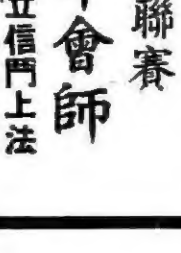 聯賽
會師
立信門上法